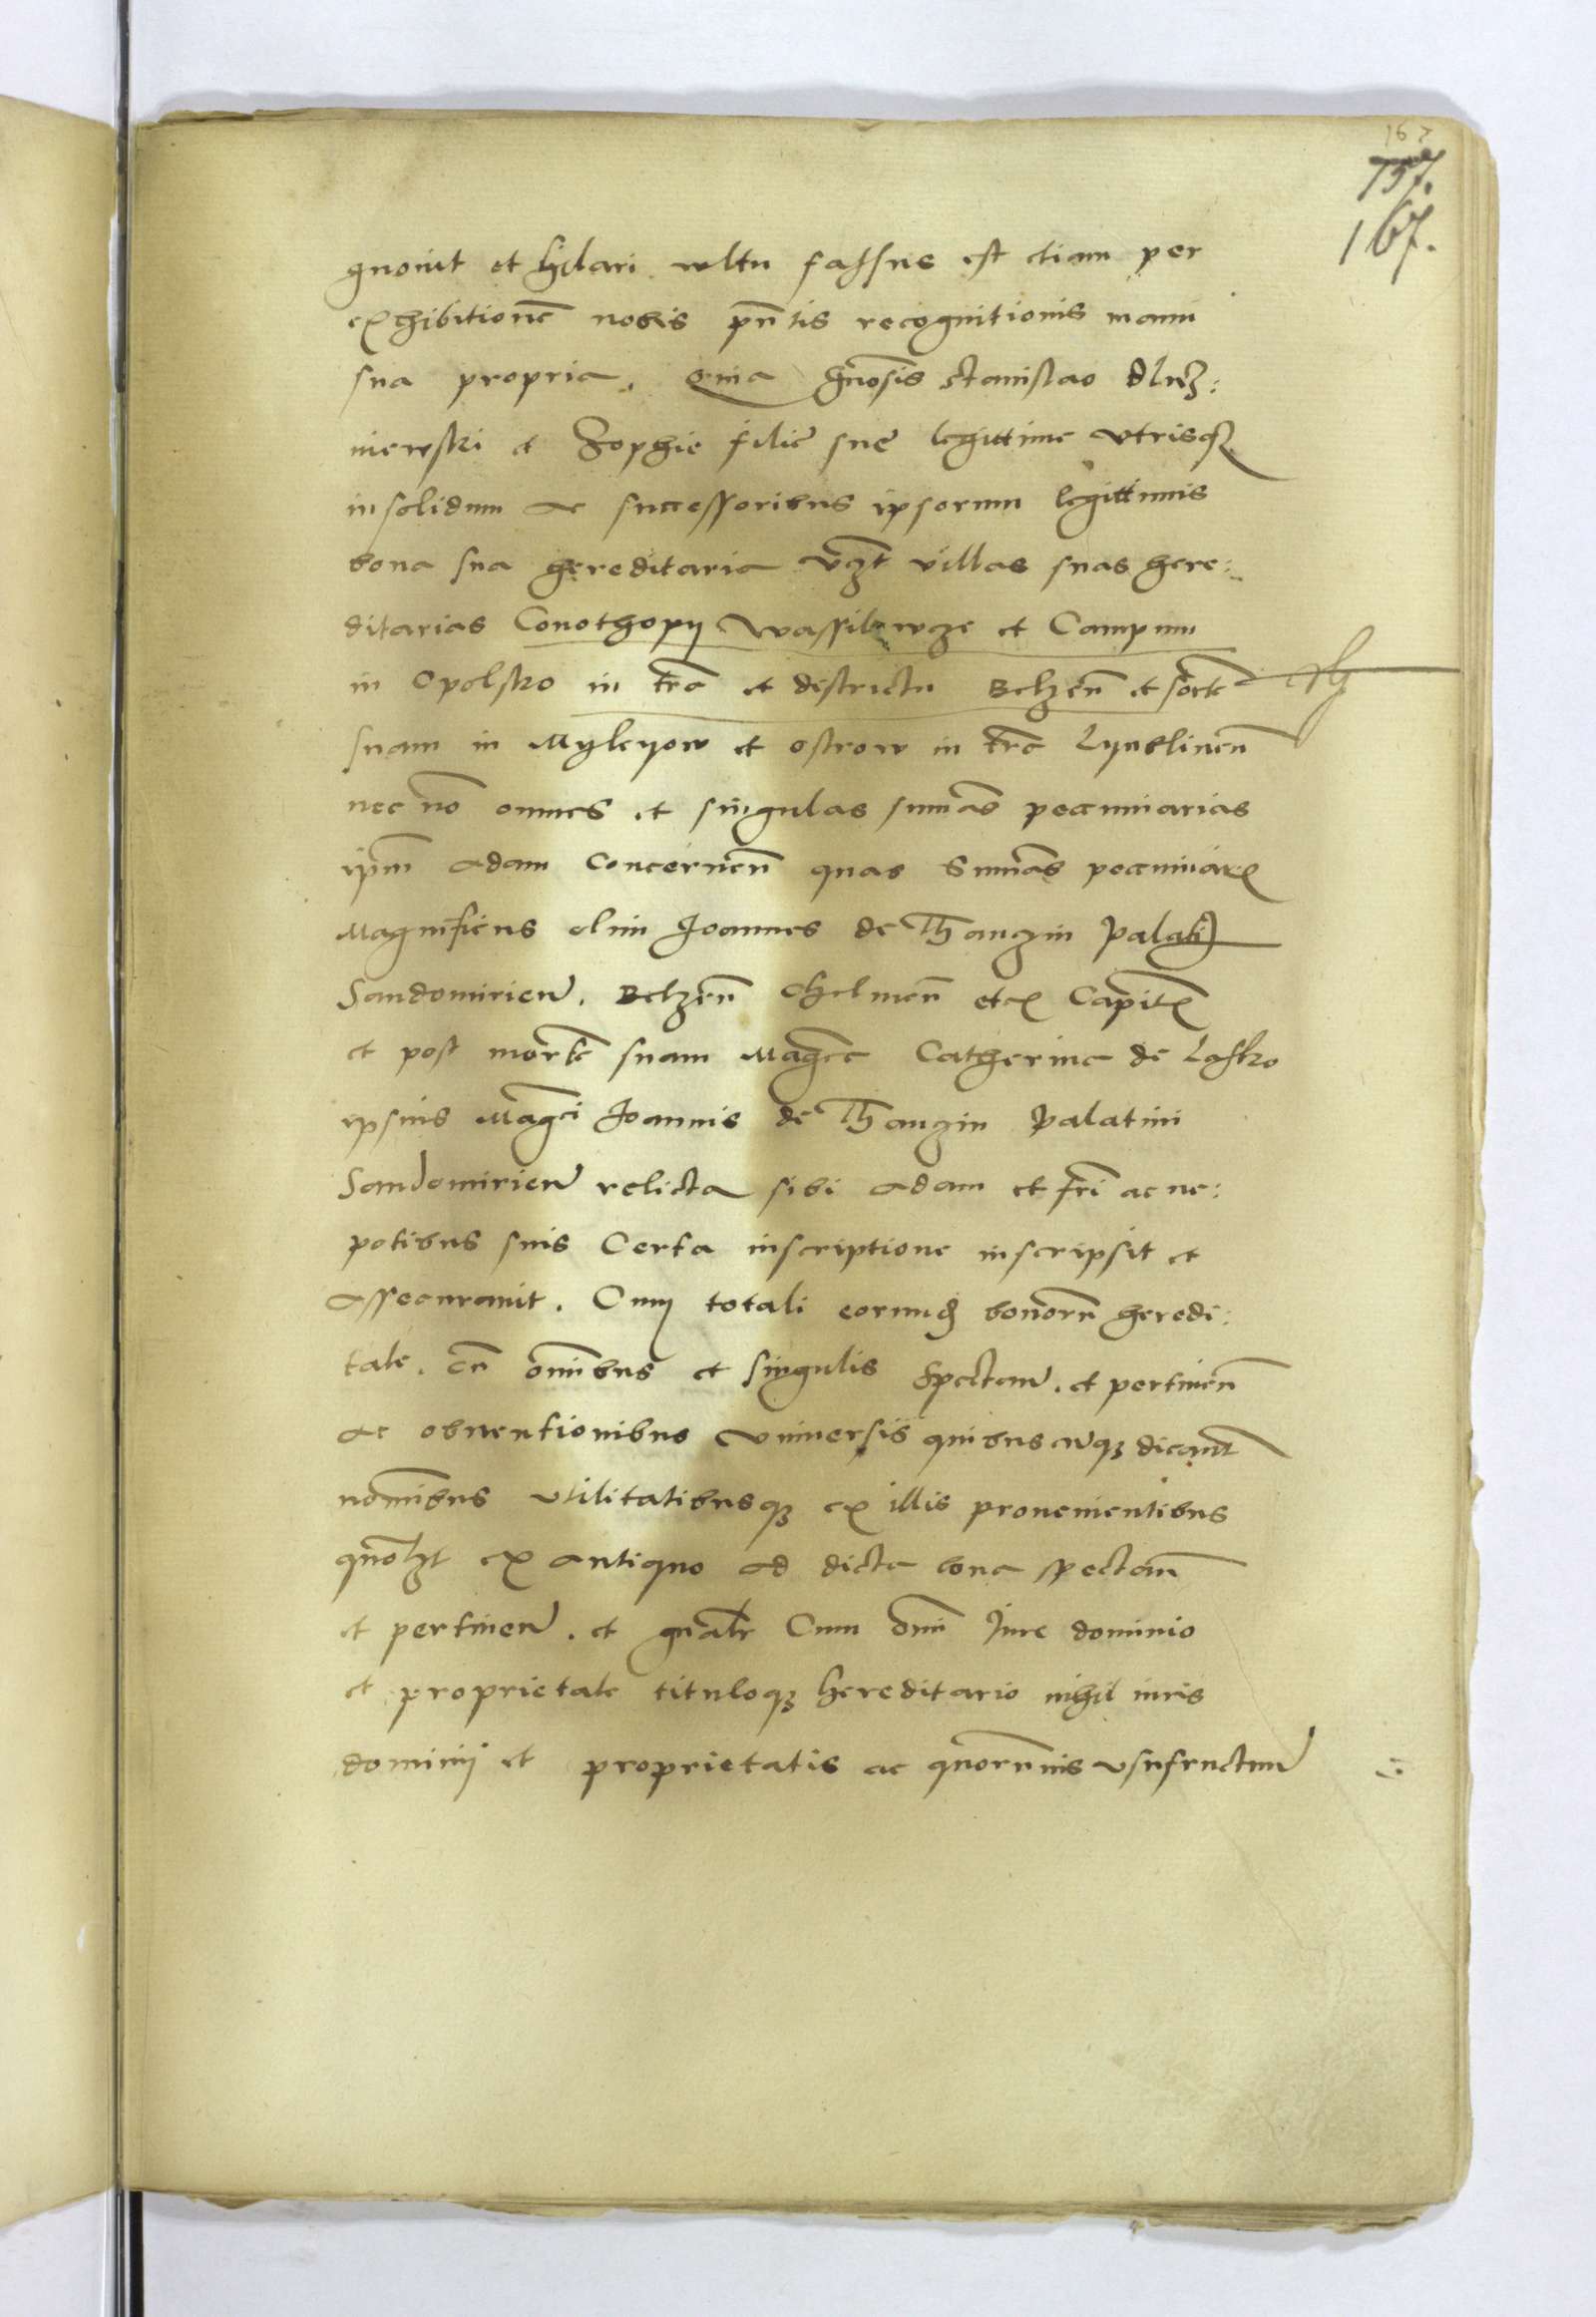 167
157.
167.
gnouit et hilari wltu fassus est etiam per
exhibitionē nobis pn̄tis recognitionis manu
sua propria. Quia gn̄osis Stanislao Dluz:
niewski et Zophie filie sue legittime vtrisq3
insolidum ac successoribus ipsorum legittimis
bona sua hereditaria vz̄t villas suas here:
ditarias Conothopij Wassilowze et Campum
in Opolsko in trā et districtu Belzen̄ et sortē
suam in Myleyow et ostrow in trā Lynblinen̄
nec nō omnes et singulas sum̄as pecuniarias
ip̄m Adam Concernen̄ quas Sum̄as pecuniar̄
Magnificus olim Joannes de Thanczin Palati
Sandomirien̄. Belzen̄ Chelmen̄ etc̄ Capit̄
et post mortē suam Maḡca Catherina de Lasko
ipsius Maḡci Joannis de Thanczin Palatini
Sandomirien̄ relicta sibi Adam et fr̄i ac ne:
potibus suis Certa inscriptione inscripsit et
assecurauit. Cum totali eorund̄ bonor̄ heredi:
tate. cū om̄ibus et singulis spectan̄. et pertinen̄
ac obuentionibus vniuersis quibuscūq3 dicant̄
nom̄ibus vtilitatibusq3 ex illis prouenientibus
quōlzt ex antiquo ad dicta bona spectan̄
et pertinen̄. et gn̄alr̄ Cum om̄i Jure dominio
et proprietate tituloq3 hereditario nihil iuris
dominij et proprietatis ac quorūuis vsufructuū